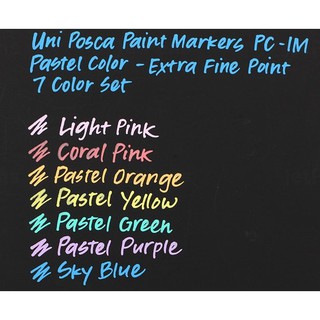 Uni Posca Paint Markers PC-1M
Pastel Color - Extra Fine Point
7 Color Set
Light Pink
Coral Pink
Pastel Orange
Pastel Yellow
Pastel Green
Pastel Purple
Sky Blue